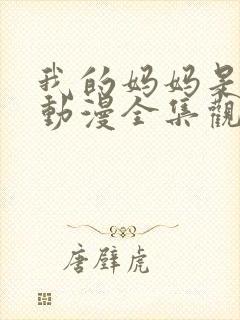 我的妈妈是
動漫全集觀
唐壁虎